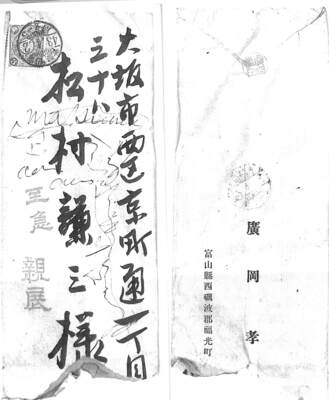 大坂市西区京町通一丁目
三十八
松村謙三様
至急
親展
廣岡孝
富山縣西礪波郡福光町